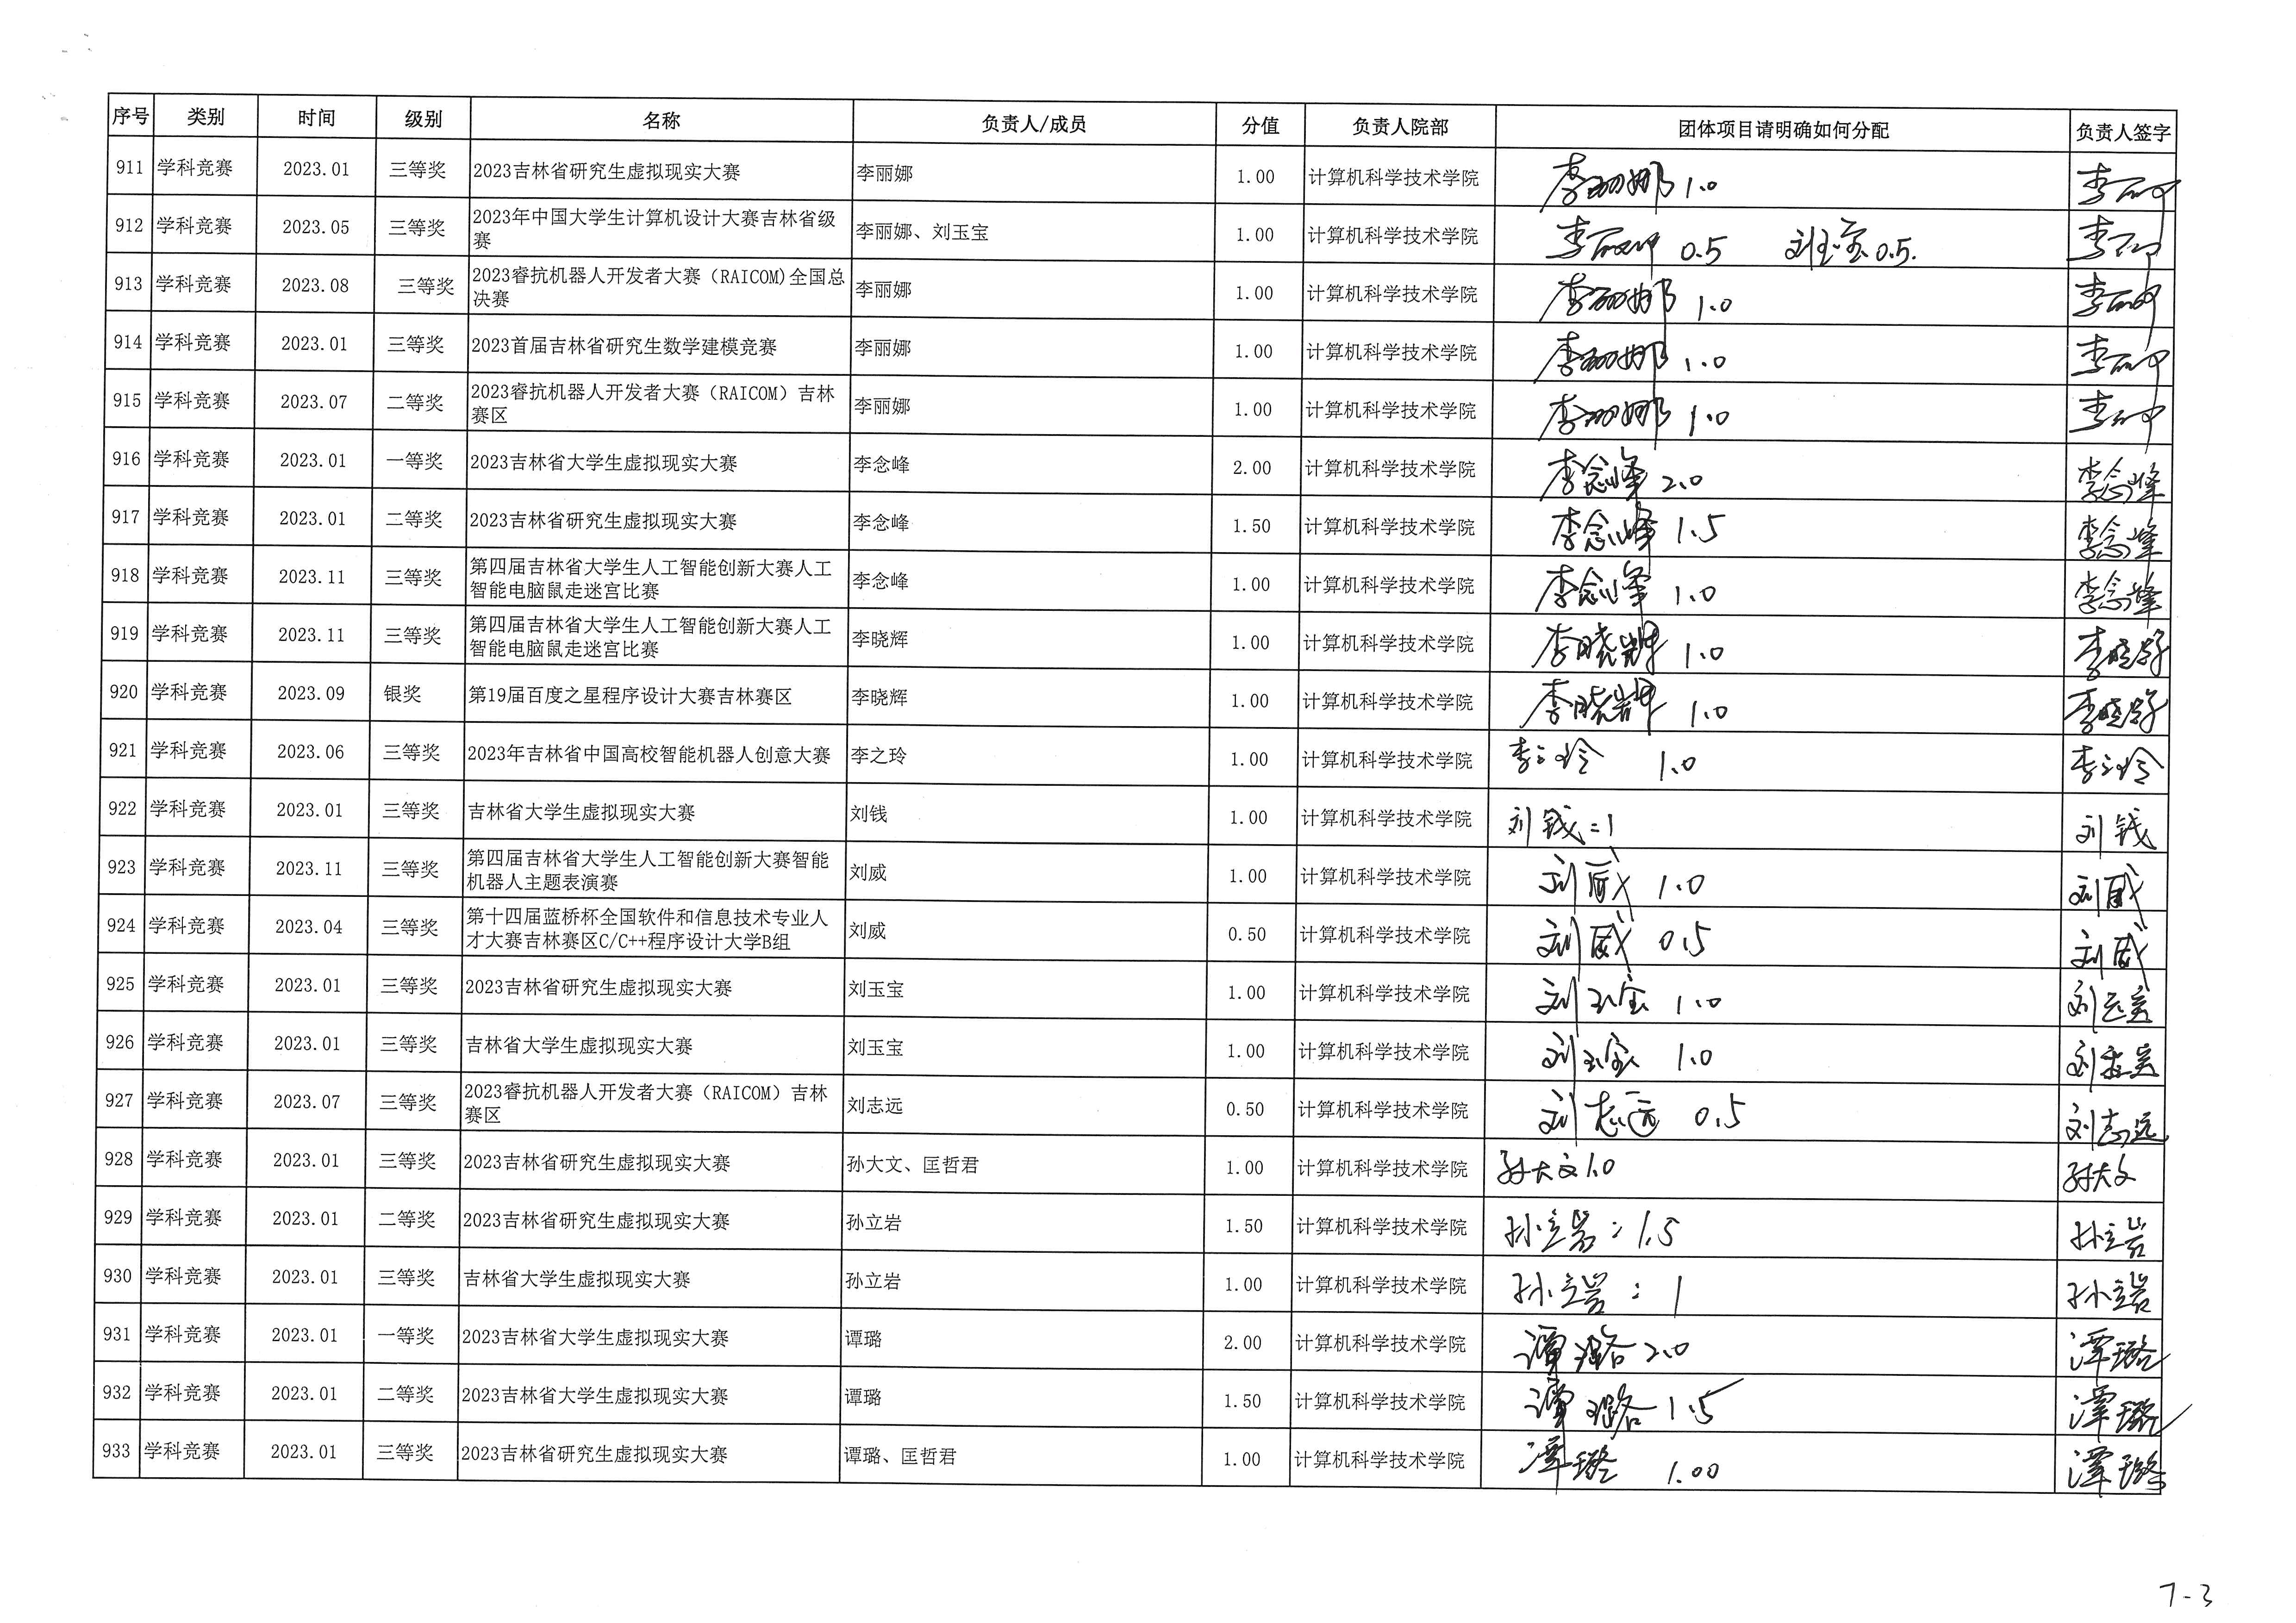 序号 类别 时间 级别 名称 负责人/成员 分值 负责人院部 团体项目请明确如何分配 负责人签字
911 学科竞赛 2023.01 三等奖 2023吉林省研究生虚拟现实大赛 李丽娜 1.00 计算机科学技术学院 李丽娜 1.0 李丽娜
912 学科竞赛 2023.05 三等奖 2023年中国大学生计算机设计大赛吉林省级
赛 李丽娜、刘玉宝 1.00 计算机科学技术学院 李丽娜 0.5 刘玉宝 0.5. 李丽娜
913 学科竞赛 2023.08 三等奖 2023睿抗机器人开发者大赛（RAICOM)全国总
决赛 李丽娜 1.00 计算机科学技术学院 李丽娜 1.0 李丽娜
914 学科竞赛 2023.01 三等奖 2023首届吉林省研究生数学建模竞赛 李丽娜 1.00 计算机科学技术学院 李丽娜 1.0 李丽娜
915 学科竞赛 2023.07 二等奖 2023睿抗机器人开发者大赛（RAICOM）吉林
赛区 李丽娜 1.00 计算机科学技术学院 李丽娜 1.0 李丽娜
916 学科竞赛 2023.01 一等奖 2023吉林省大学生虚拟现实大赛 李念峰 2.00 计算机科学技术学院 李念峰 2.0 李念峰
917 学科竞赛 2023.01 二等奖 2023吉林省研究生虚拟现实大赛 李念峰 1.50 计算机科学技术学院 李念峰 1.5 李念峰
918 学科竞赛 2023.11 三等奖 第四届吉林省大学生人工智能创新大赛人工
智能电脑鼠走迷宫比赛 李念峰 1.00 计算机科学技术学院 李念峰 1.0 李念峰
919 学科竞赛 2023.11 三等奖 第四届吉林省大学生人工智能创新大赛人工
智能电脑鼠走迷宫比赛 李晓辉 1.00 计算机科学技术学院 李晓辉 1.0 李晓辉
920 学科竞赛 2023.09 银奖 第19届百度之星程序设计大赛吉林赛区 李晓辉 1.00 计算机科学技术学院 李晓辉 1.0 李晓辉
921 学科竞赛 2023.06 三等奖 2023年吉林省中国高校智能机器人创意大赛 李之玲 1.00 计算机科学技术学院 李之玲 1.0 李之玲
922 学科竞赛 2023.01 三等奖 吉林省大学生虚拟现实大赛 刘钱 1.00 计算机科学技术学院 刘钱=1 刘钱
923 学科竞赛 2023.11 三等奖 第四届吉林省大学生人工智能创新大赛智能
机器人主题表演赛 刘威 1.00 计算机科学技术学院 刘威 1.0 刘威
924 学科竞赛 2023.04 三等奖 第十四届蓝桥杯全国软件和信息技术专业人
才大赛吉林赛区C/C++程序设计大学B组 刘威 0.50 计算机科学技术学院 刘威 0.5 刘威
925 学科竞赛 2023.01 三等奖 2023吉林省研究生虚拟现实大赛 刘玉宝 1.00 计算机科学技术学院 刘玉宝 1.0 刘玉宝
926 学科竞赛 2023.01 三等奖 吉林省大学生虚拟现实大赛 刘玉宝 1.00 计算机科学技术学院 刘玉宝 1.0 刘玉宝
927 学科竞赛 2023.07 三等奖 2023睿抗机器人开发者大赛（RAICOM）吉林
赛区 刘志远 0.50 计算机科学技术学院 刘志远 0.5 刘志远
928 学科竞赛 2023.01 三等奖 2023吉林省研究生虚拟现实大赛 孙大文、匡哲君 1.00 计算机科学技术学院 孙大文1.0 孙大文
929 学科竞赛 2023.01 二等奖 2023吉林省研究生虚拟现实大赛 孙立岩 1.50 计算机科学技术学院 孙立岩：1.5 孙立岩
930 学科竞赛 2023.01 三等奖 吉林省大学生虚拟现实大赛 孙立岩 1.00 计算机科学技术学院 孙立岩：1 孙立岩
931 学科竞赛 2023.01 一等奖 2023吉林省大学生虚拟现实大赛 谭璐 2.00 计算机科学技术学院 谭璐 2.0 谭璐
932 学科竞赛 2023.01 二等奖 2023吉林省大学生虚拟现实大赛 谭璐 1.50 计算机科学技术学院 谭璐 1.5 谭璐
933 学科竞赛 2023.01 三等奖 2023吉林省研究生虚拟现实大赛 谭璐、匡哲君 1.00 计算机科学技术学院 谭璐 1.00 谭璐
7-3